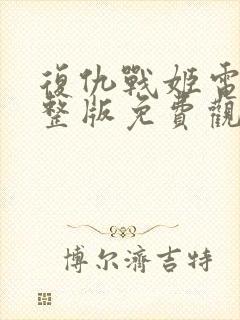 復仇戰姬電
整版免費觀
博尔濟吉特